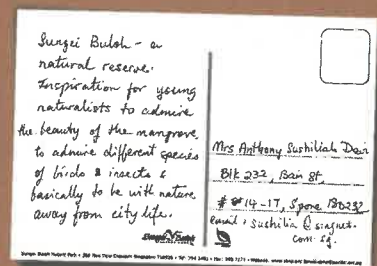 Sungei Buloh - a
natural reserve.
Inspiration for young
naturalists to admire
the beauty of the mangrove,
to admire different species
of birds & insects &
basically to be with nature
away from city life.
Mrs Anthony Sushiliah Devi
Blk 232, Bain St,
# 14-17, S'pore 180232
email: sushilia @ singnet.
com. sg.
Sungei Buloh Nature Park